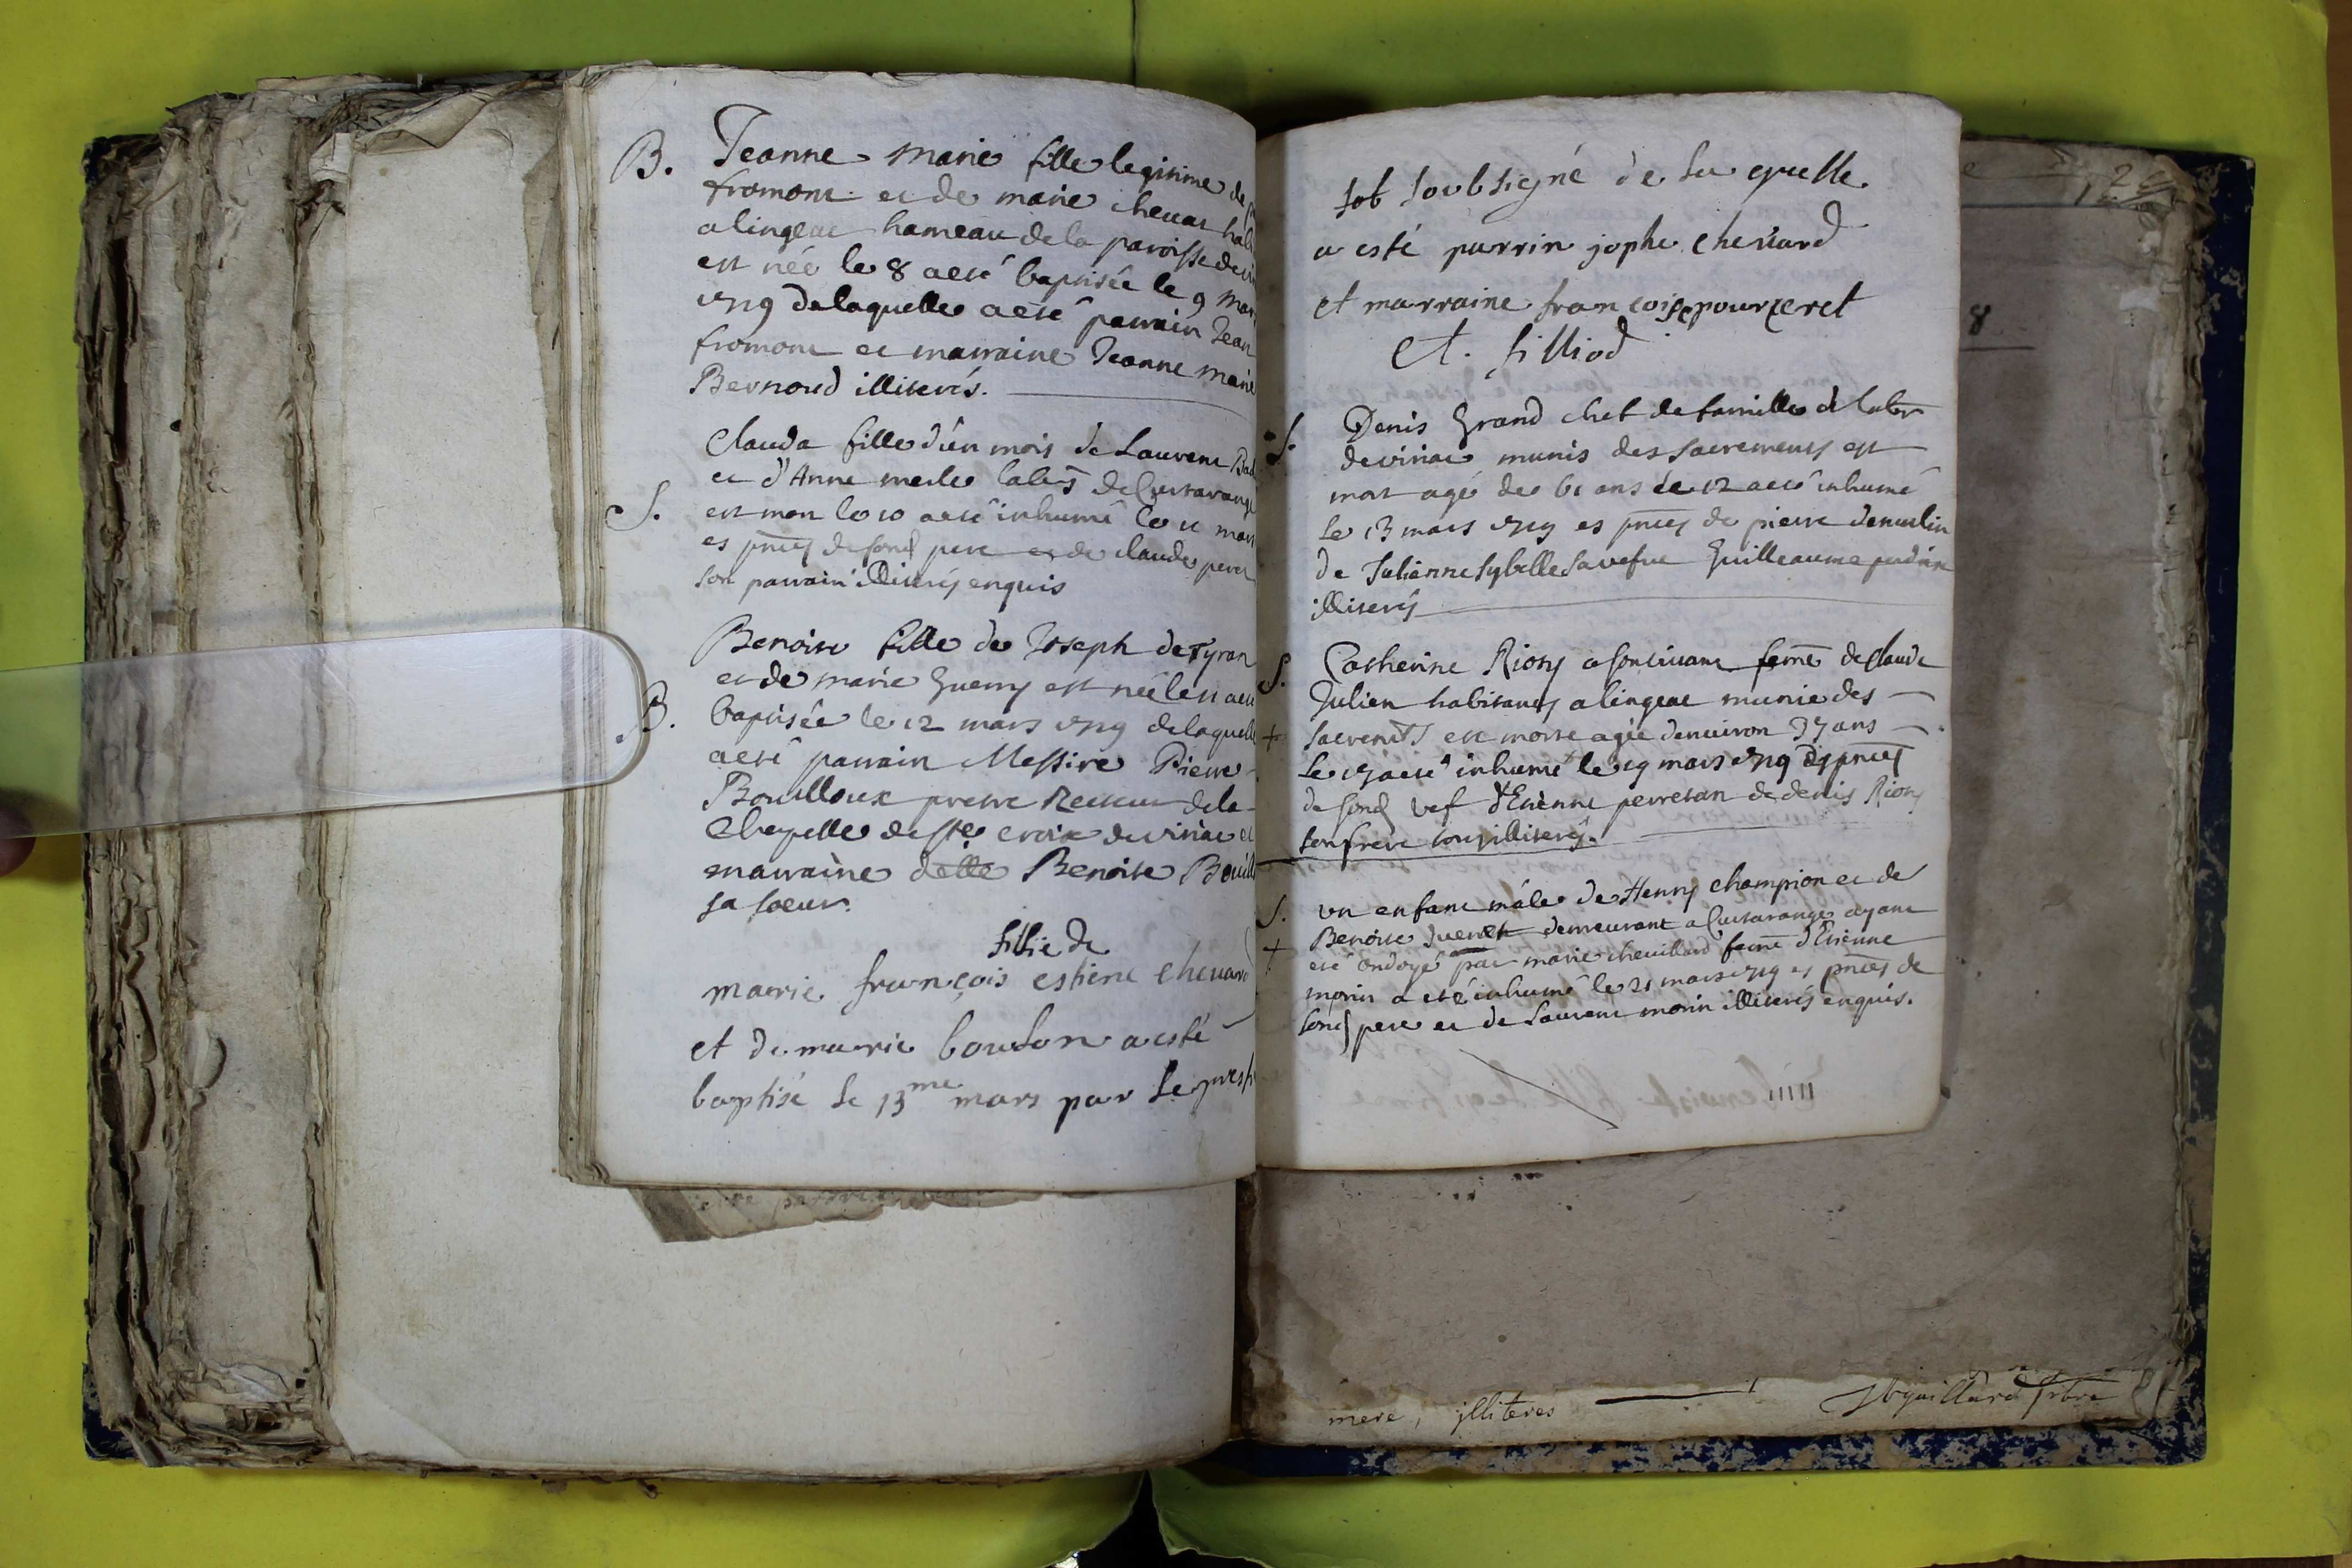 B. Jeanne Marie fille legitime de
fromont et de marie chevat hab
a lingeat hameau de la paroisse de vi
est née le 8 a eté baptisée le 9 mar
1719 de laquelle a eté parrain Jean
fromont et marraine Jeanne Marie
Bernoud illiterés.
Clauda fille d'un mois de Laurent
et d'Anne merle labrs
S. est mort le 10 a eté inhumé le 11 mars
es pnces de sond pere et de claude
son parrain illiterés enquis
Benoite fille de Joseph deTyran
et de marie Guerry est née le 11 a eté
B. baptisée le 12 mars 1719 de laquelle
a eté parrain Messire Pierre
Bouilloux prestre Recteur de la
Chapelle de ste croix de viriat et
marraine delle Benoite Bouill
sa soeur.
fillie de
marie françois estiene chevard
et de marie bouton a esté
baptisé le 13me mars par le prest
sob soubsigné de la quelle
a esté parrin jophe chevard
et marraine francoise pourceret
Et. filliod
S. Denis Grand chef de famille
de viriat munis des sacrements est
mort agé de 61 ans le 12 a eté inhumé
le 13 mars 1719 es pnces de pierre demoulin
de Julienne Sybelle sa vefve Guilleaume
illiterés
S. Catherine Riony a son vivant feme de Claude
Julien habitants a lingeat munie des
+ sacremts est morte agée denviron 35 ans
le 17 a eté inhumé le 19 mars 1719 es pnces
de sond vef d'Etienne perretan de denis Riony
son frere tous illiterés.
S. un enfant mâle de Henry champion et de
Benoite Juenet demeurant a ayant
+ eté ondoyé par marie chevillard feme d'Etienne
morin a eté inhumé le 21 mars 1719 es pnces de
sond pere et de Laurent morin illiterés enquis.
mere, illiteres